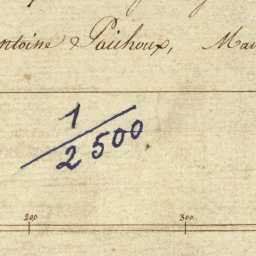 ntoine & Paichoux, Mai
1/2500
200 300